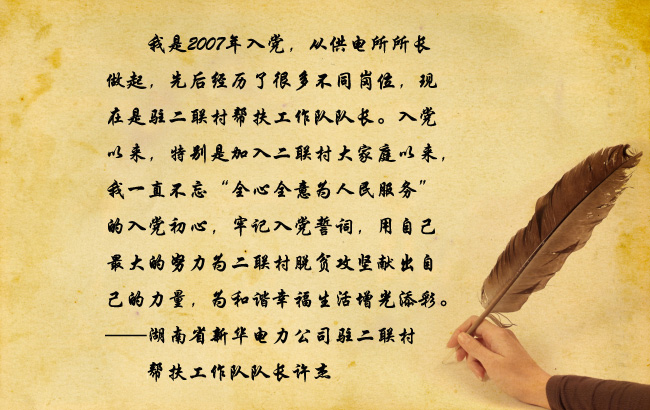 我是2007年入党，从供电所所长
做起，先后经历了很多不同岗位，现
在是驻二联村帮扶工作队队长。入党
以来，特别是加入二联村大家庭以来，
我一直不忘“全心全意为人民服务”
的入党初心，牢记入党誓词，用自己
最大的努力为二联村脱贫攻坚献出自
己的力量，为和谐幸福生活增光添彩。
——湖南省新华电力公司驻二联村
帮扶工作队队长许杰